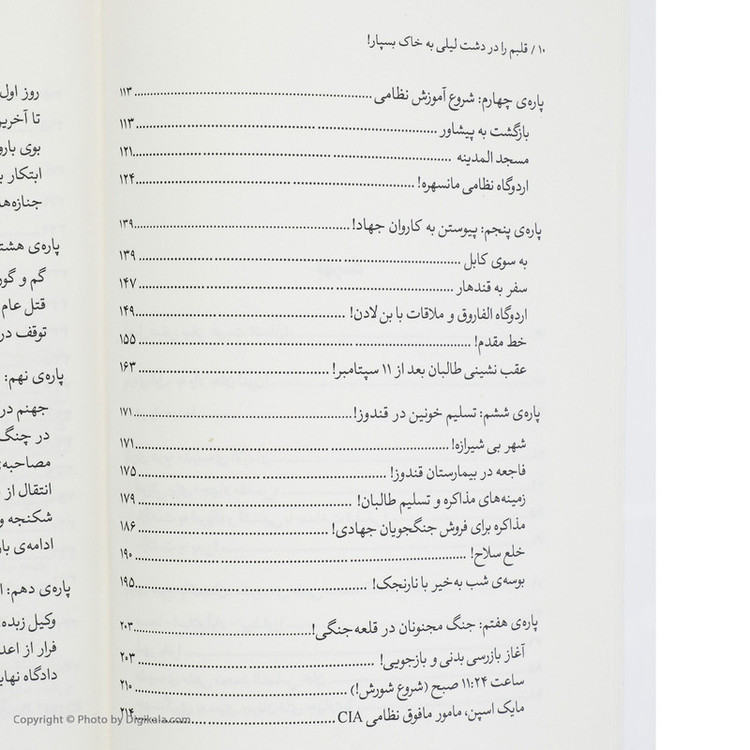 ۱۰ / قلبم را در دشت لیلی به خاک بسپار!
پاره‌ی چهارم: شروع آموزش نظامی ........ ۱۱۳
بازگشت به پیشاور ........ ۱۱۳
مسجد المدینه ........ ۱۲۱
اردوگاه نظامی مانسهره! ........ ۱۲۴
پاره‌ی پنجم: پیوستن به کاروان جهاد! ........ ۱۳۹
به سوی کابل ........ ۱۳۹
سفر به قندهار ........ ۱۴۷
اردوگاه الفاروق و ملاقات با بن لادن! ........ ۱۴۹
خط مقدم! ........ ۱۵۵
عقب نشینی طالبان بعد از ۱۱ سپتامبر! ........ ۱۶۳
پاره‌ی ششم: تسلیم خونین در قندوز! ........ ۱۷۱
شهر بی شیرازه! ........ ۱۷۱
فاجعه در بیمارستان قندوز! ........ ۱۷۵
زمینه‌های مذاکره و تسلیم طالبان! ........ ۱۷۹
مذاکره برای فروش جنگجویان جهادی! ........ ۱۸۶
خلع سلاح! ........ ۱۹۰
بوسه‌ی شب به‌خیر با نارنجک! ........ ۱۹۵
پاره‌ی هفتم: جنگ مجنونان در قلعه‌جنگی! ........ ۲۰۳
آغاز بازرسی بدنی و بازجویی! ........ ۲۰۳
ساعت ۱۱:۲۴ صبح (شروع شورش!) ........ ۲۱۰
مایک اسپن، مامور مافوق نظامی CIA ........ ۲۱۴
روز اول
تا آخرین
بوی بارو
ابتکار ب
جنازه‌ها
پاره‌ی هشت
گم و گور
قتل عام
توقف در
پاره‌ی نهم:
جهنم در
در چنگ
مصاحبه
انتقال از
شکنجه و
ادامه‌ی باز
پاره‌ی دهم: ا
وکیل زبده
فرار از اعد
دادگاه نهای
Copyright © Photo by Digikala.com